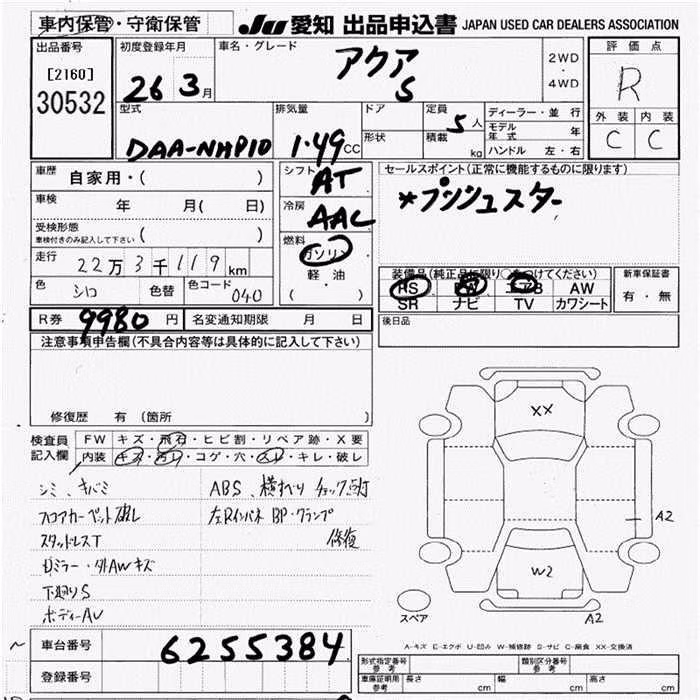 車内保管・守衛保管 JU 愛知 出品申込書 JAPAN USED CAR DEALERS ASSOCIATION
出品番号 [2160] 30532
初度登録年月 26 3月
車名・グレード アクア S
2WD ・ 4WD
評価点 R
外装 内装 C C
型式 DAA-NHP10
排気量 1.49 CC
ドア 形状
定員 5人 積載 kg
ディーラー・並行
モデル年式 年
ハンドル 左・右
車歴 自家用・( )
シフト AT
セールスポイント(正常に機能するものに限ります)
*プッシュスター
車検 年 月( 日)
冷房 AAC
受検形態 車検付きのみ記入して下さい ( )
燃料 ガソリン 軽油 ( )
走行 22万3千119km
装備品(純正品に限り○をつけてください)
PS PW エアB AW
SR ナビ TV カワシート
新車保証書 有・無
色 シロ 色替 色コード 040
R券 9980円 名変通知期限 月 日
後日品
注意事項申告欄(不具合内容等は具体的に記入して下さい)
修復歴 有(箇所 )
検査員記入欄 FW キズ・飛石・ヒビ割・リペア跡・X要
内装 キズ・汚レ・コゲ・穴・スレ・キレ・破レ
シミ、キバミ
フロアカーペット破レ
スタッドレスT
ドミラー・外AWキズ
下廻りS
ボディーAU
ABS、横すべりチェック点灯
左Rインパネ BP・クランプ
修復
XX
A2
W2
A2
スペア
A-キズ E-エクボ U-凹み W-補修跡 S-サビ C-腐食 XX-交換済
車台番号 6255384
登録番号
形式指定番号 参考 類別区分番号 参考
車庫証明用 参考 長さ cm 幅 cm 高さ cm